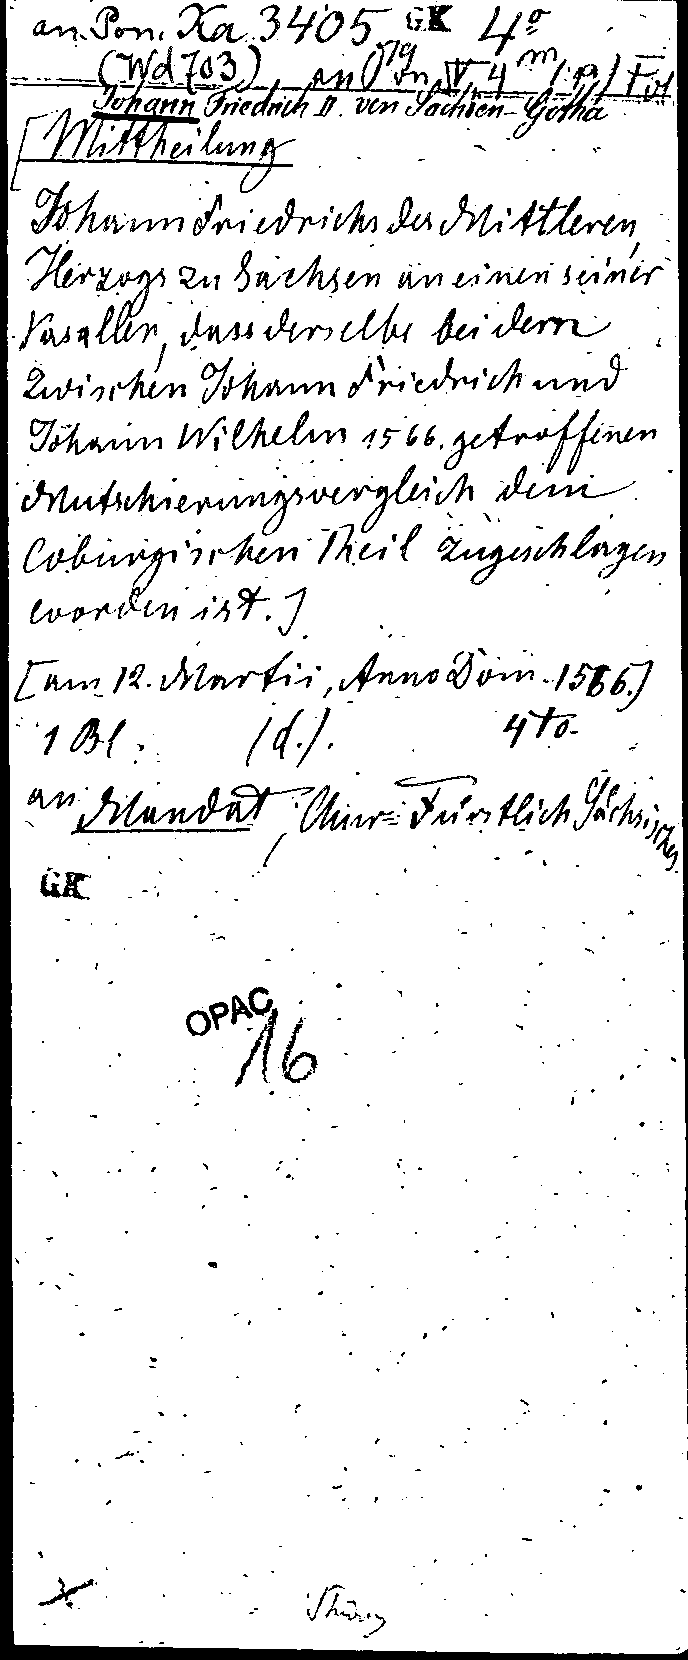 an Pon. Xa 3405 GK 4º
(Wd 703) an
Johann Friedrich II. von Sachsen-Gotha
[Mittheilung
Johann Friedrichs des Mittleren,
Herzogs zu Sachsen an einen seiner
Vasallen, dass derselbe bei dem
zwischen Johann Friedrich und
Johann Wilhelm 1566. getroffenen
Mutschierungsvergleich dem
Coburgischen Theil zugeschlagen
worden ist.]
[am 12. Martii, Anno Dom. 1566.]
1 Bl. (d.). 4to.
an Mandat, Chur-Fürstlich Sächsisches
GK
OPAC
16